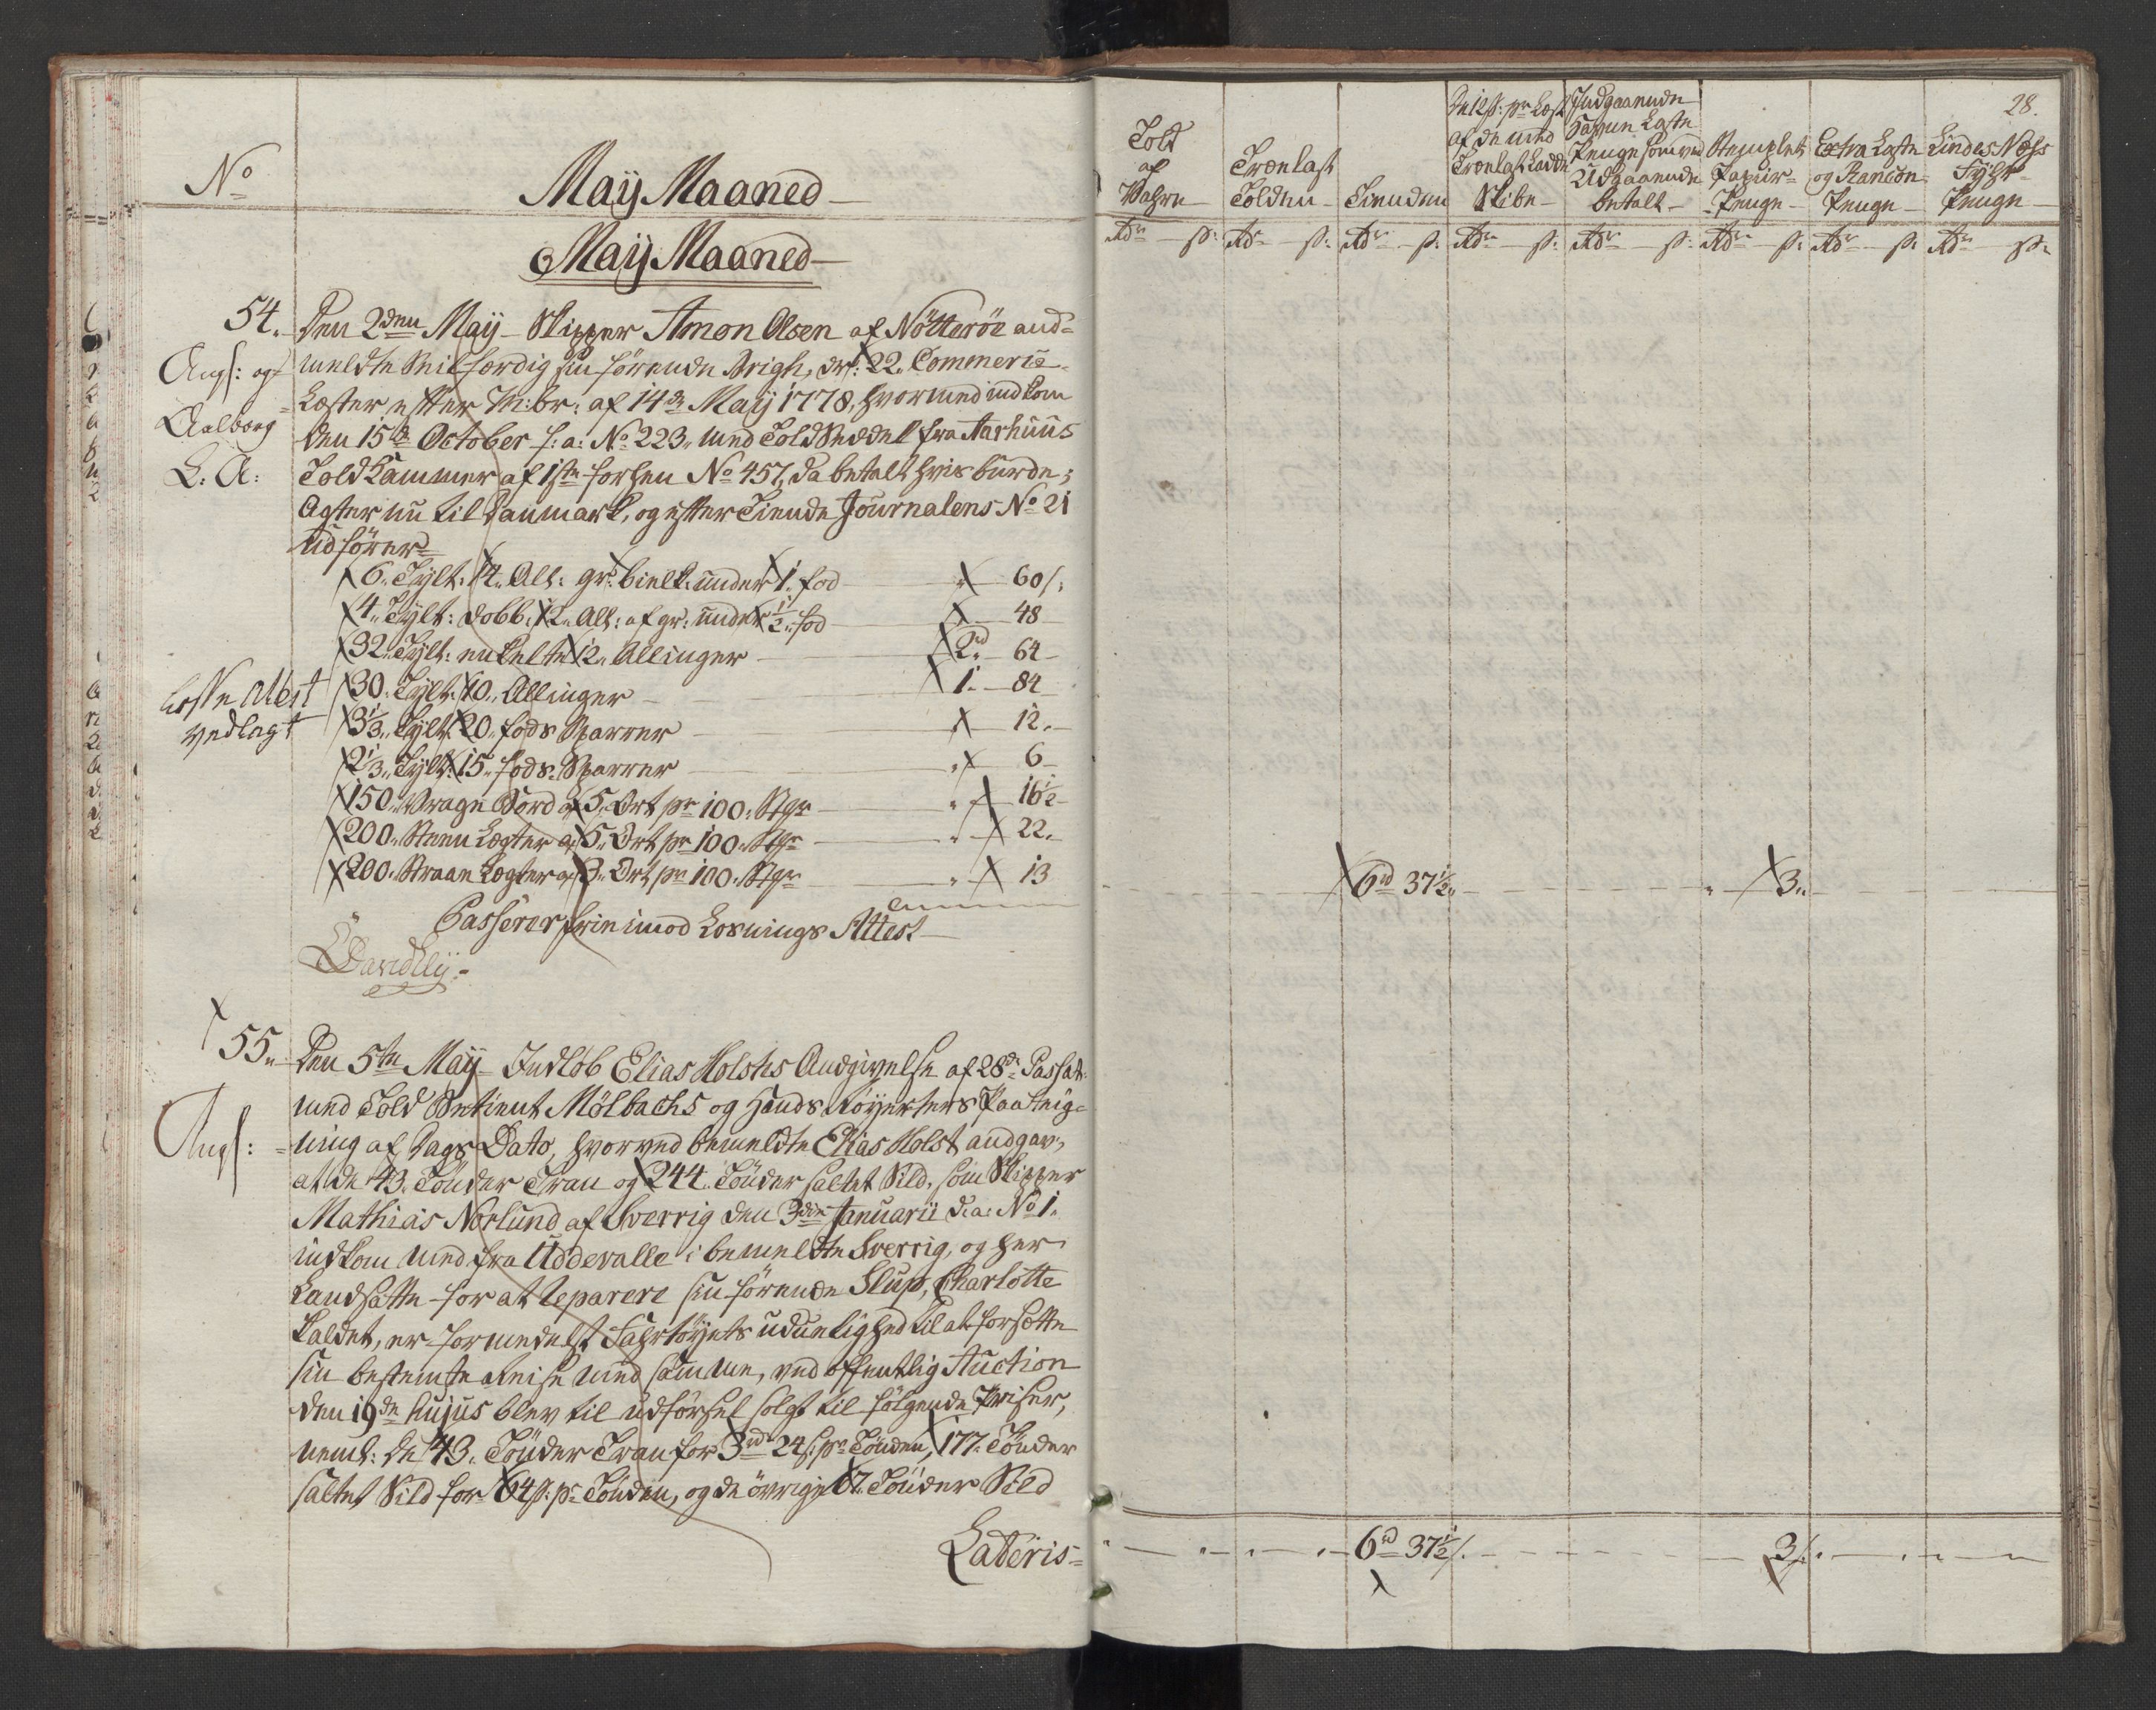 No
May Maaned
May Maaned
54. Den 2den May Skipper Amon Olsen af Nötteröe and-
Angf: og meldte Seilfærdig sin förende Brigh, dr: 22 Commerce
Aalborg Læster efter M:br: af 14de May 1778, hvormed indkom
den 15de October f: a: No 223, med Told Seddel fra Aarhuus
L: A: Told Kammer af 1ste forhen No 457, da betalt hvis burde;
Agter nu til Danmark, og efter Tiende Journalens No 21
udförer
6 Tylt: 14 All: gr: bielk: under 1 fod 60 s:
4 Tylt: dobb: 12 All: af gr: under 1/2 fod 48
32 Tylt: enkelte 12 Allinger 2 rd 64
30 Tylt: 10 Allinger 1 84
Losse Attest
vedlagt
3 1/3 Tylt 20 fods Sparrer 12
2 1/3 Tylt: 15 fods Sparrer 6
150 Vrage Bord a 5 Ort pr 100 Stqr 16 1/2
200 Steen Lægter a 5 Ort pr 100 Stqr 22
200 Straae Lægter a 3 Ort pr 100 Stqr 13
Passerer frie imod Losnings Attest
55. Den 5te May Indlöb Elias Holstes Andgivelse af 28de Passat:
med Told Betient Mölbachs og Hands Röyerters Paateig-
Angf: ning af Dags Dato, hvorved bemeldte Elias Holst andgav,
at de 43 Tönder Tran og 244 Tönder saltet Sild, som Skipper
Mathias Norlund af Sverrig den 3die Januarii d: a: No 1
indkom med fra Uddevalle i bemeldte Sverrig, og her
Landsatte for at reparere sin förende Slup, Charlotte
kaldet, er formedelst Fahrtöyets uduelighed til at forsætte
sin bestemte Reise med samme, ved offentlig Auction
den 19de hujus blev til udförsel solgt til fölgende Priser,
neml: De 43 Tönder Tran for 3 rd 24 s: pr Tönden, 177 Tönder
saltet Sild for 64 s: pr Tönden, og de övrige 67 Tönder Sild
Lateris
28.
Told
af
Wahre
Trælast
Tolden
Tienden
De 12 s: pr Læst
af de med
Trælast Ladde
Skibe
Indgaaende
Havne Laste
Penge som ved
Udgaaende
betalt
Stemplet
Papir-
Penge
Extra Laste
og Rancon
Penge
Lindes Næss
Fyhr-
Penge
Rdr s: Rdr s: Rdr s: Rdr s: Rdr s: Rdr s: Rdr s: Rdr s:
6 rd 37 1/2 3
6 rd 37 1/2 s. 3 s.